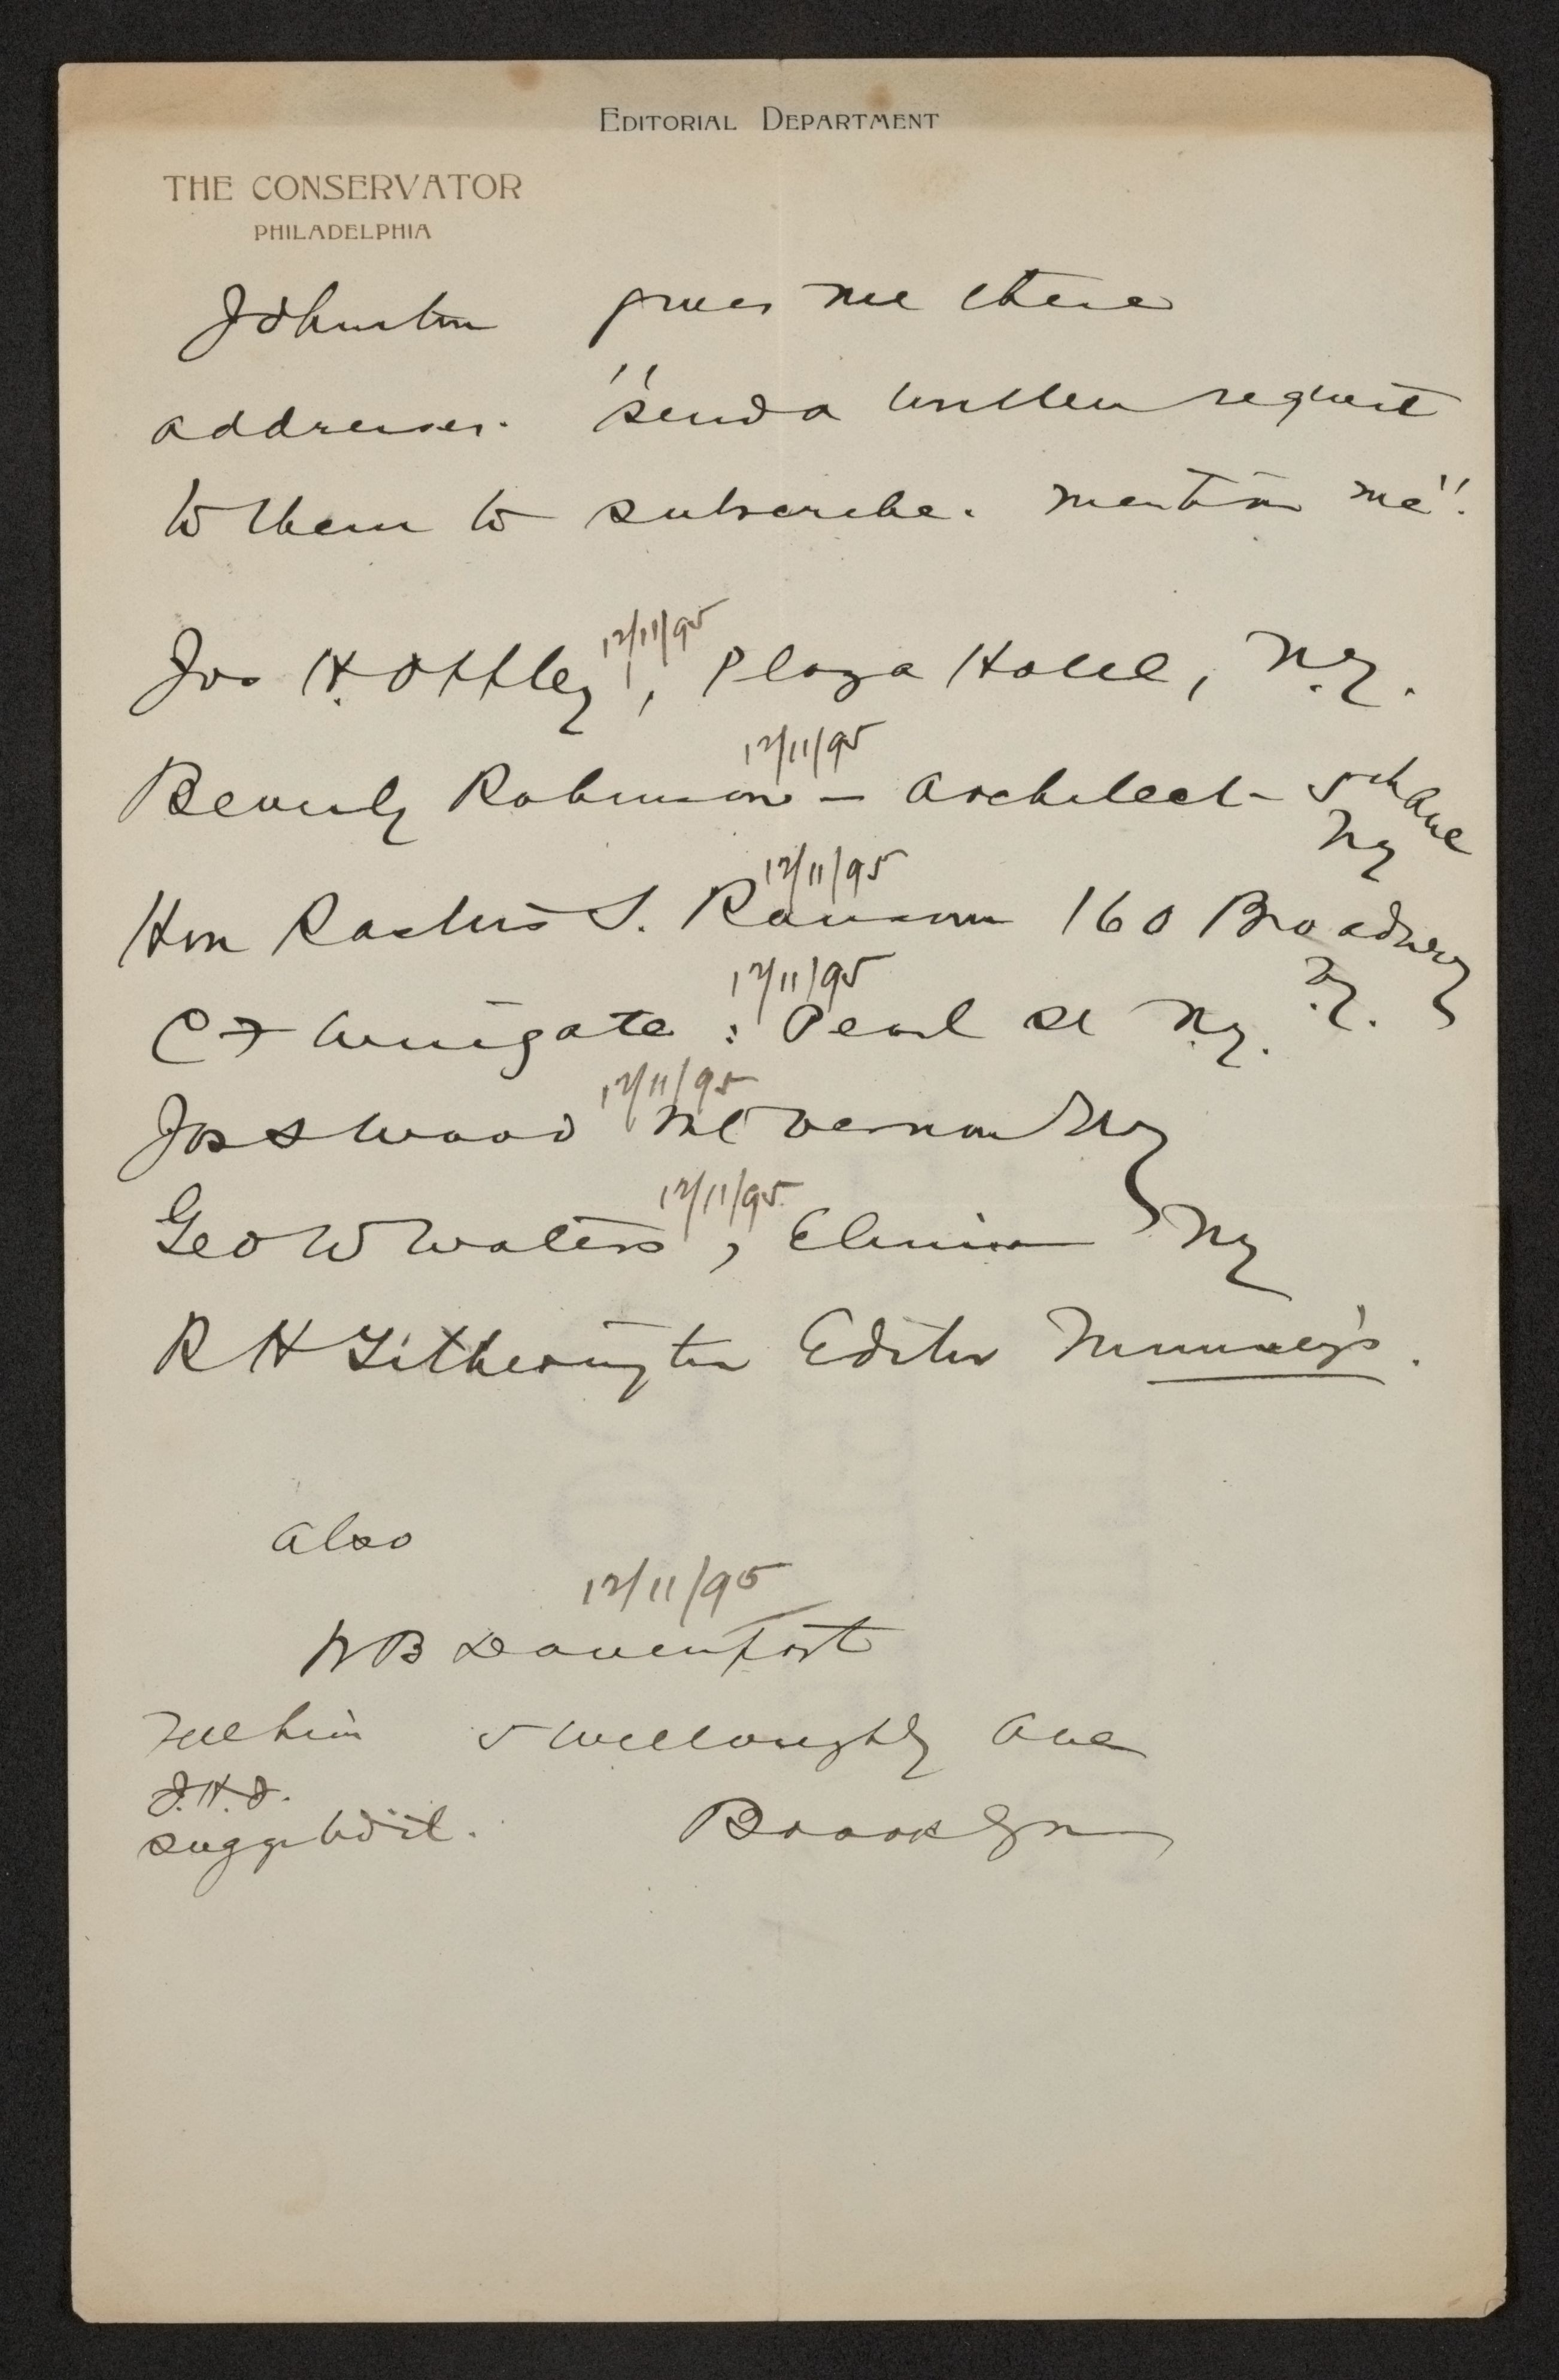 EDITORIAL DEPARTMENT
THE CONSERVATOR
PHILADELPHIA
Johnston gives me these
addresses. "Send a written request
to them to subscribe. Mention me".
12/11/95
Jos H. Offley, Plaza Hotel, N.Y.
12/11/95
Beverly Robinson – architect – 5th Ave
NY
12/11/95
Hon Rastus S. Ransom 160 Broadway
N.Y.
12/11/95
C F Wingate : Pearl St N.Y.
12/11/95
Jas S Wood Mt Vernon NY
12/11/95
Geo W Waters, Elmira NY
R H Titherington Editor Munsey's.
Also
12/11/95
W B Davenport
Tell him 5 Willoughby Ave
J.H.J.
suggested it. Brooklyn